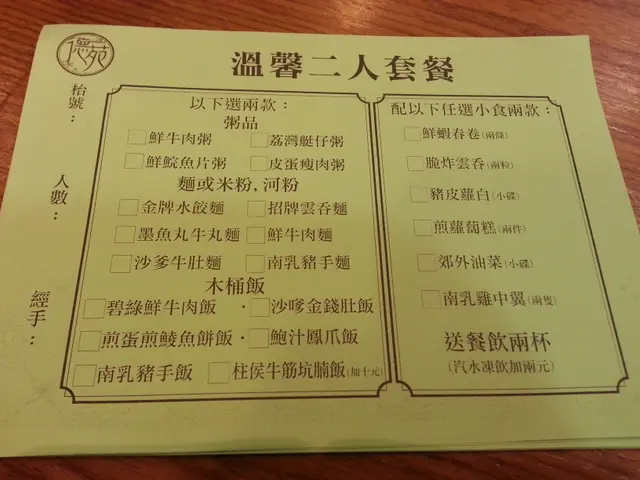 德苑
溫馨二人套餐
枱號：
人數：
經手：
以下選兩款：
粥品
鮮牛肉粥 荔灣艇仔粥
鮮鯇魚片粥 皮蛋瘦肉粥
麵或米粉，河粉
金牌水餃麵 招牌雲吞麵
墨魚丸牛丸麵 鮮牛肉麵
沙爹牛肚麵 南乳豬手麵
木桶飯
碧綠鮮牛肉飯 · 沙嗲金錢肚飯
煎蛋煎鯪魚餅飯 · 鮑汁鳳爪飯
南乳豬手飯 柱侯牛筋坑腩飯(加十元)
配以下任選小食兩款：
鮮蝦春卷(兩條)
脆炸雲吞(兩粒)
豬皮蘿白(小碟)
煎蘿蔔糕(兩件)
郊外油菜(小碟)
南乳雞中翼(兩隻)
送餐飲兩杯
(汽水凍飲加兩元)